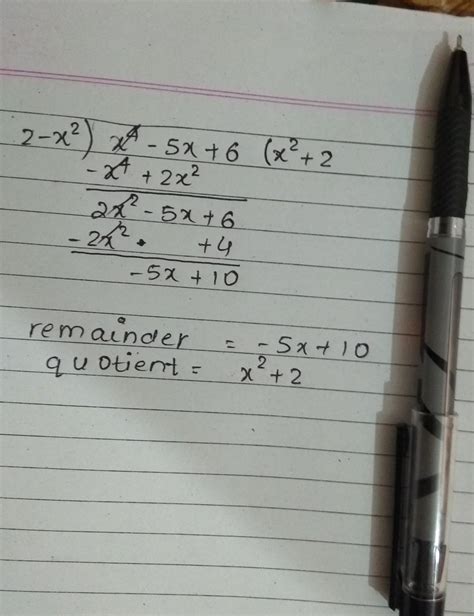 2-x²) x⁴ - 5x + 6 (x² + 2
-x⁴ + 2x²
2x² - 5x + 6
-2x² . + 4
-5x + 10
remainder = -5x + 10
quotient = x² + 2